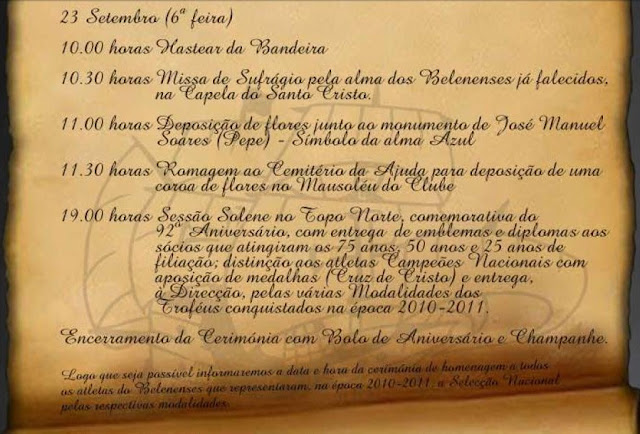 23 Setembro (6ª feira)
10.00 horas Hastear da Bandeira
10.30 horas Missa de Sufrágio pela alma dos Belenenses já falecidos,
na Capela do Santo Cristo.
11.00 horas Deposição de flores junto ao monumento de José Manuel
Soares (Pepe) - Símbolo da alma Azul
11.30 horas Romagem ao Cemitério da Ajuda para deposição de uma
coroa de flores no Mausoléu do Clube
19.00 horas Sessão Solene no Topo Norte, comemorativa do
92º Aniversário, com entrega de emblemas e diplomas aos
sócios que atingiram os 75 anos, 50 anos e 25 anos de
filiação; distinção aos atletas Campeões Nacionais com
aposição de medalhas (Cruz de Cristo) e entrega,
à Direcção, pelas várias Modalidades dos
Troféus conquistados na época 2010-2011.
Encerramento da Cerimónia com Bolo de Aniversário e Champanhe.
Logo que seja possível informaremos a data e hora da cerimónia de homenagem a todos
os atletas do Belenenses que representaram, na época 2010-2011, a Selecção Nacional
pelas respectivas modalidades.